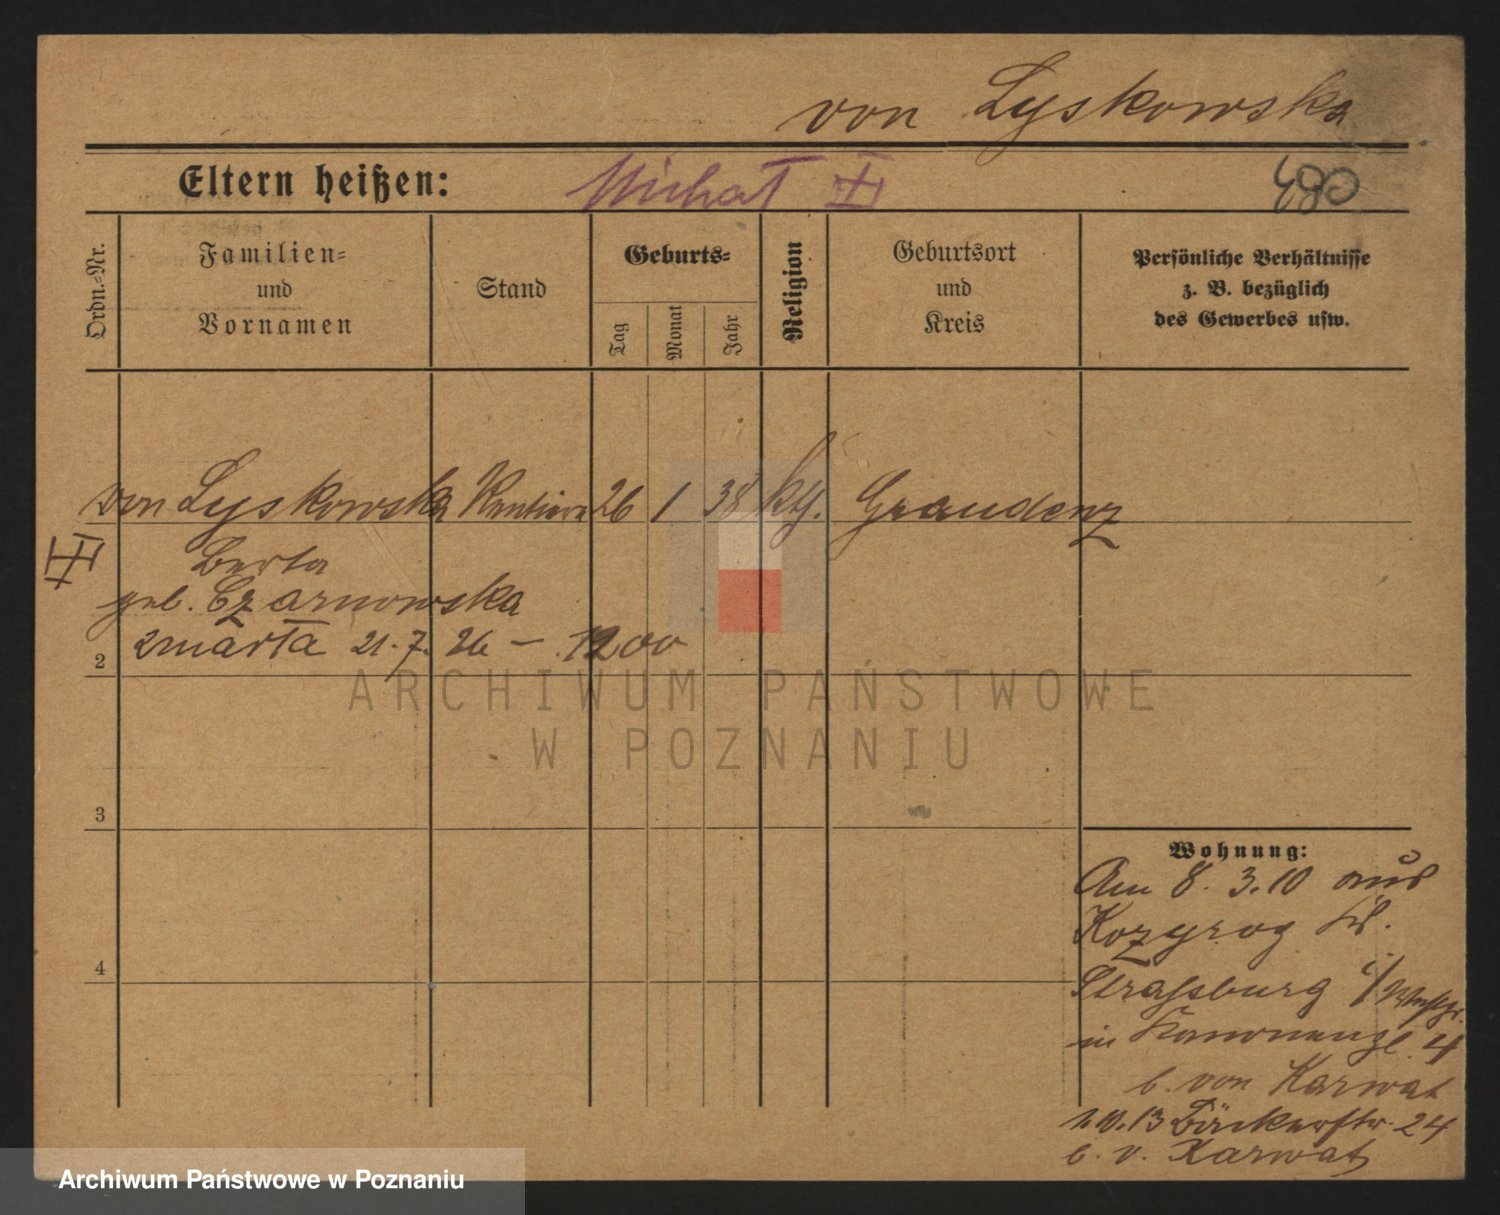 von Lyskowska
Eltern heißen: Michał 490
Ordn.-Nr.
Familien- und Vornamen
Stand
Geburts-
Tag
Monat
Jahr
Religion
Geburtsort und Kreis
Persönliche Verhältnisse z. B. bezüglich des Gewerbes usw.
von Lyskowska Rentiere 26 1 38 ktg. Graudenz
Berta
geb. Czarnowska
zmarła 21.7.26 – 1200
2
3
4
Wohnung:
Am 8. 3. 10 aus
Kozyrog Kr.
Strassburg i/Westpr.
in Kanonenpl. 4
b. von Karwat
1.10.13 Bäckerstr. 24
b. v. Karwat
ARCHIWUM PAŃSTWOWE
W POZNANIU
Archiwum Państwowe w Poznaniu